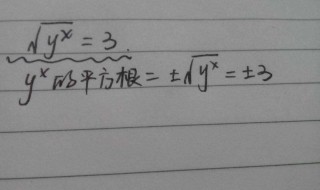 √(y^x) = 3.
y^x的平方根 = ±√(y^x) = ±3